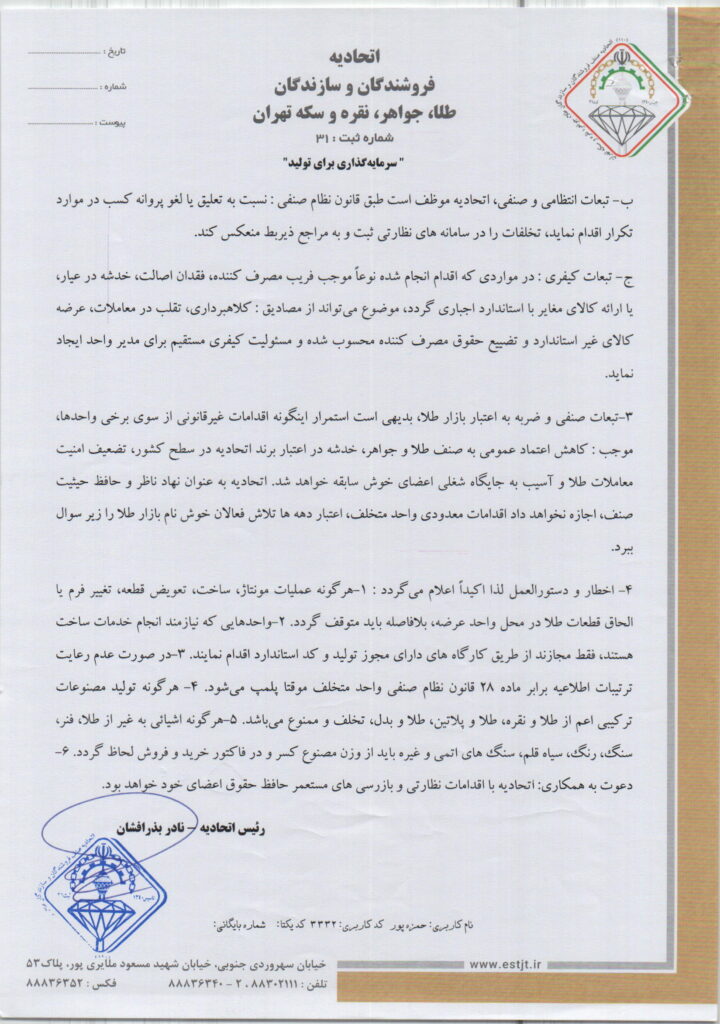 اتحادیه
فروشندگان و سازندگان
طلا، جواهر، نقره و سکه تهران
شماره ثبت : ۳۱
" سرمایه‌گذاری برای تولید"
تاریخ : ........................
شماره : ........................
پیوست : ........................
ب- تبعات انتظامی و صنفی، اتحادیه موظف است طبق قانون نظام صنفی : نسبت به تعلیق یا لغو پروانه کسب در موارد
تکرار اقدام نماید، تخلفات را در سامانه های نظارتی ثبت و به مراجع ذیربط منعکس کند.
ج- تبعات کیفری : در مواردی که اقدام انجام شده نوعاً موجب فریب مصرف کننده، فقدان اصالت، خدشه در عیار،
یا ارائه کالای مغایر با استاندارد اجباری گردد، موضوع می‌تواند از مصادیق : کلاهبرداری، تقلب در معاملات، عرضه
کالای غیر استاندارد و تضییع حقوق مصرف کننده محسوب شده و مسئولیت کیفری مستقیم برای مدیر واحد ایجاد
نماید.
۳-تبعات صنفی و ضربه به اعتبار بازار طلا، بدیهی است استمرار اینگونه اقدامات غیرقانونی از سوی برخی واحدها،
موجب : کاهش اعتماد عمومی به صنف طلا و جواهر، خدشه در اعتبار برند اتحادیه در سطح کشور، تضعیف امنیت
معاملات طلا و آسیب به جایگاه شغلی اعضای خوش سابقه خواهد شد. اتحادیه به عنوان نهاد ناظر و حافظ حیثیت
صنف، اجازه نخواهد داد اقدامات معدودی واحد متخلف، اعتبار دهه ها تلاش فعالان خوش نام بازار طلا را زیر سوال
ببرد.
۴- اخطار و دستورالعمل لذا اکیداً اعلام می‌گردد : ۱-هرگونه عملیات مونتاژ، ساخت، تعویض قطعه، تغییر فرم یا
الحاق قطعات طلا در محل واحد عرضه، بلافاصله باید متوقف گردد. ۲-واحدهایی که نیازمند انجام خدمات ساخت
هستند، فقط مجازند از طریق کارگاه های دارای مجوز تولید و کد استاندارد اقدام نمایند. ۳-در صورت عدم رعایت
ترتیبات اطلاعیه برابر ماده ۲۸ قانون نظام صنفی واحد متخلف موقتا پلمپ می‌شود. ۴- هرگونه تولید مصنوعات
ترکیبی اعم از طلا و نقره، طلا و پلاتین، طلا و بدل، تخلف و ممنوع می‌باشد. ۵-هرگونه اشیائی به غیر از طلا، فنر،
سنگ، رنگ، سیاه قلم، سنگ های اتمی و غیره باید از وزن مصنوع کسر و در فاکتور خرید و فروش لحاظ گردد. ۶-
دعوت به همکاری: اتحادیه با اقدامات نظارتی و بازرسی های مستعمر حافظ حقوق اعضای خود خواهد بود.
رئیس اتحادیه - نادر بذرافشان
نام کاربری: حمزه پور کد کاربری: ۳۳۳۲ کد یکتا: شماره بایگانی:
www.estjt.ir
خیابان سهروردی جنوبی، خیابان شهید مسعود ملایری پور، پلاک۵۳
تلفن : ۸۸۳۰۲۱۱۱ ، ۲ - ۸۸۸۳۶۳۴۰ فکس : ۸۸۸۳۶۳۵۲